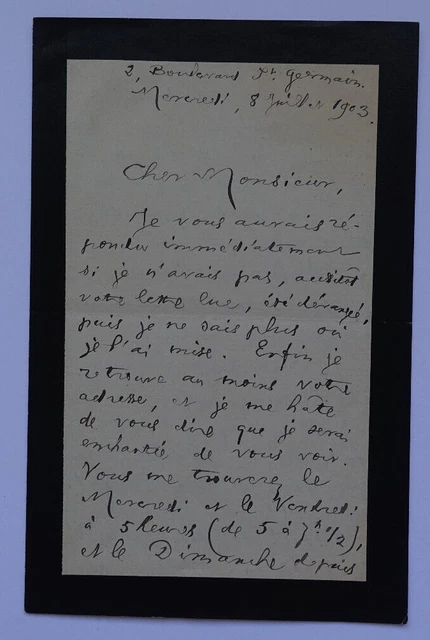 2, Boulevard St. Germain.
Mercredi, 8 Juillet 1903.
Cher Monsieur,
Je vous aurais ré-
pondu immédiatement
si je n'avais pas, aussitôt
votre lettre lue, été dérangé,
puis je ne sais plus où
je l'ai mise. Enfin je
retrouve au moins votre
adresse, et je me hâte
de vous dire que je serai
enchanté de vous voir.
Vous me trouverez le
Mercredi et le Vendredi
à 5 heures (de 5 à 7h 1/2),
et le Dimanche depuis